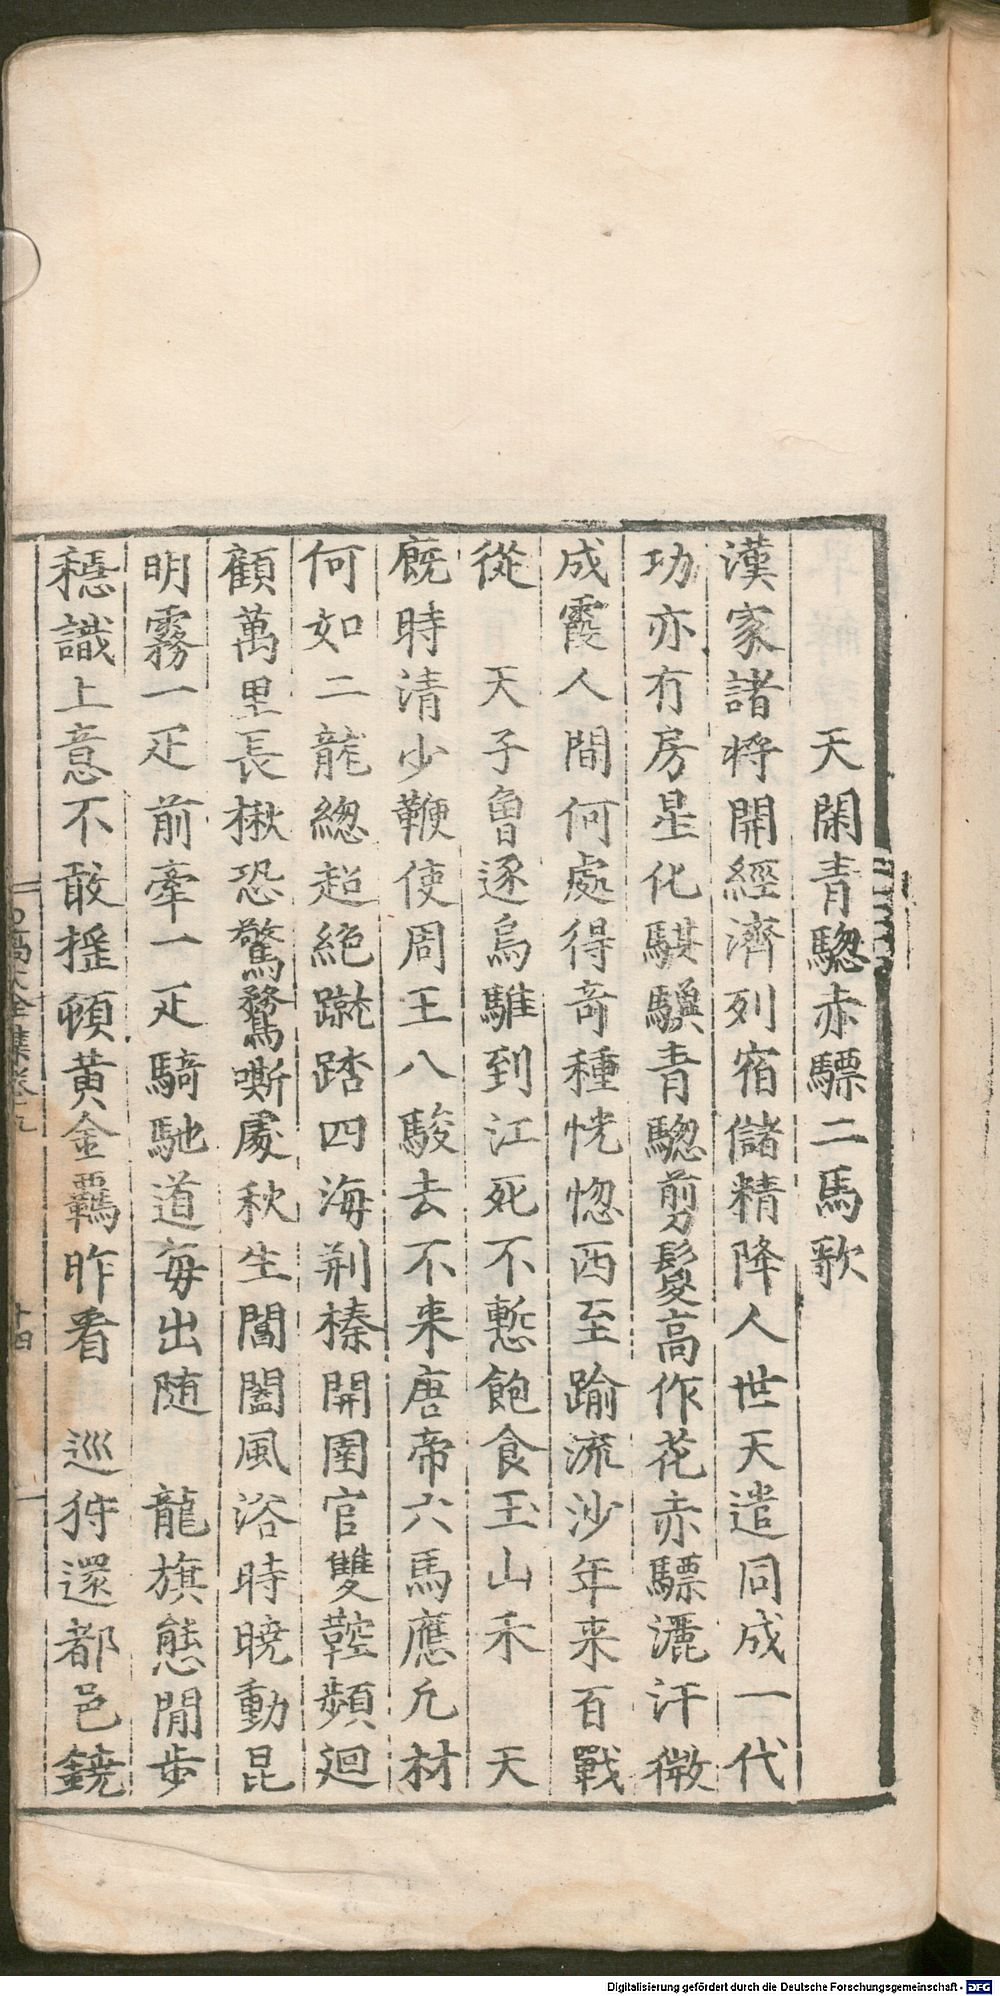 天閑青驄赤驃二馬歌
漢家諸将開經濟列宿儲精降人世天遣同成一代
功亦有房星化騏驥青驄剪鬉高作花赤驃灑汗微
成霞人間何處得竒種恍惚西至踰流沙年来百戰
從　天子魯逐烏騅到江死不慙飽食玉山禾　天
廐時清少鞭使周王八駿去不来唐帝六馬應凢材
何如二龍總超絶蹴踏四海荆榛開圉官雙鞚頻迴
顧萬里長楸恐驚騖嘶處秋生閶闔風浴時暁動昆
明霧一疋前牽一疋騎馳道每出随　龍旗態閒步
穩識上意不敢摇頓黄金羈昨看　巡狩還都邑鏡
大全集卷十九
十四
Digitalisierung gefördert durch die Deutsche Forschungsgemeinschaft - DFG